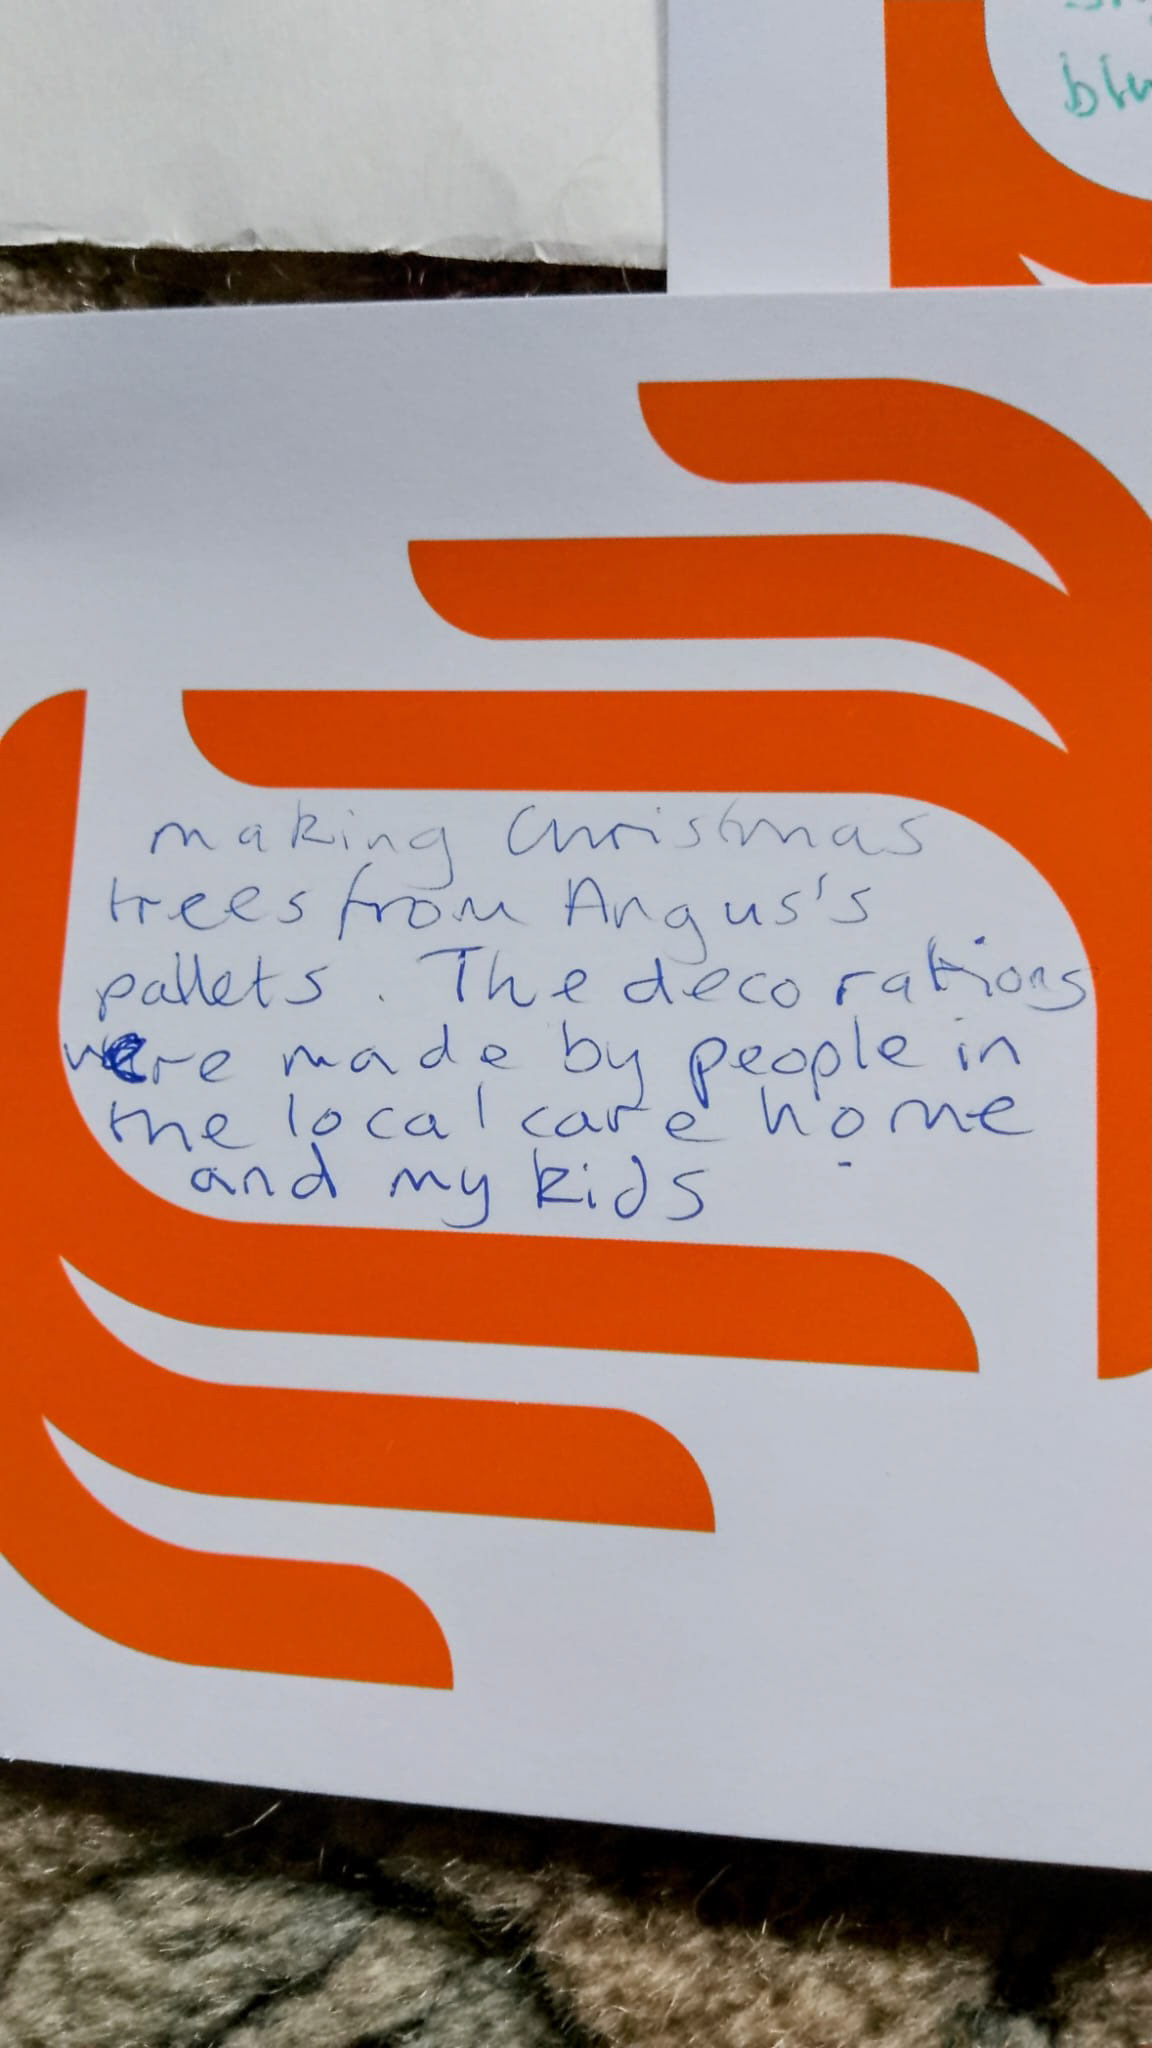 making Christmas
trees from Angus's
pallets. The decorations
were made by people in
the local care home
and my kids